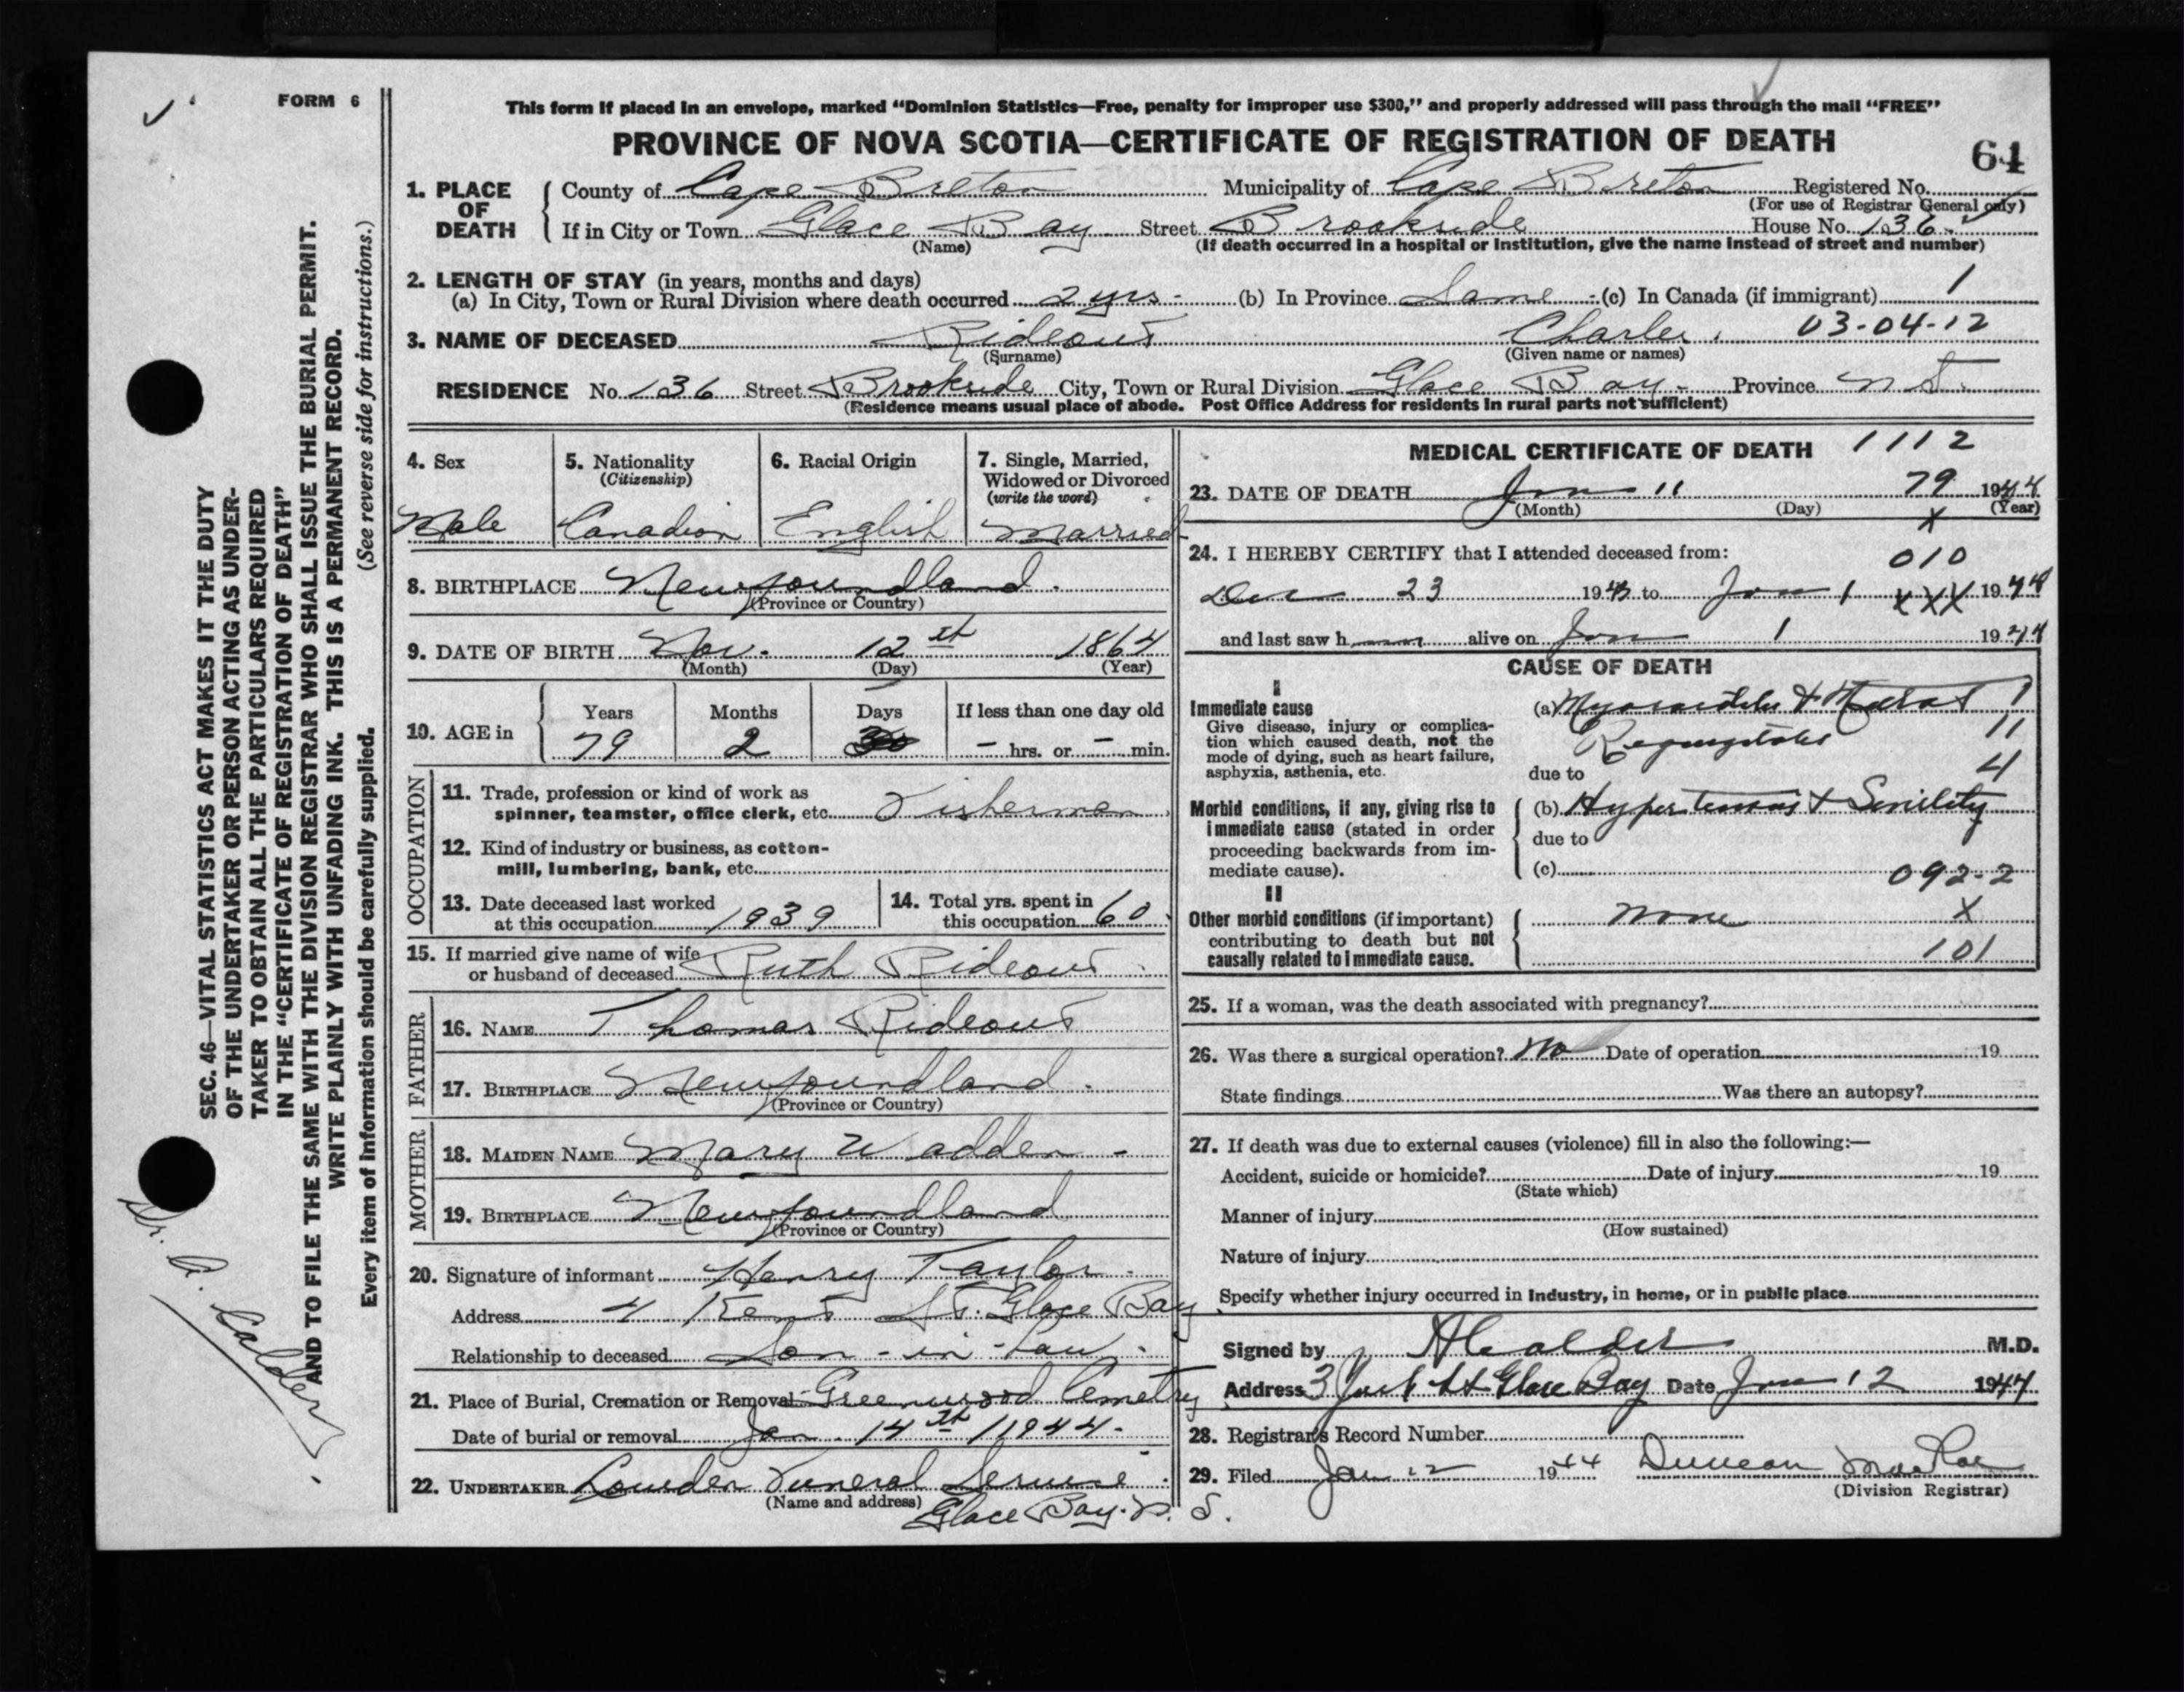 FORM 6
This form if placed in an envelope, marked “Dominion Statistics—Free, penalty for improper use $300,” and properly addressed will pass through the mail “FREE”
PROVINCE OF NOVA SCOTIA—CERTIFICATE OF REGISTRATION OF DEATH
64
1. PLACE OF DEATH
County of Cape Breton Municipality of Cape Breton Registered No.
(For use of Registrar General only)
If in City or Town Glace Bay Street Brookside House No. 136
(Name) (If death occurred in a hospital or institution, give the name instead of street and number)
2. LENGTH OF STAY (in years, months and days)
(a) In City, Town or Rural Division where death occurred 2 yrs. (b) In Province Same (c) In Canada (if immigrant) 1
3. NAME OF DECEASED Rideout Charles 03-04-12
(Surname) (Given name or names)
RESIDENCE No. 136 Street Brookside City, Town or Rural Division Glace Bay Province N S.
(Residence means usual place of abode. Post Office Address for residents in rural parts not sufficient)
4. Sex
Male
5. Nationality
(Citizenship)
Canadian
6. Racial Origin
English
7. Single, Married,
Widowed or Divorced
(write the word)
Married
8. BIRTHPLACE Newfoundland.
(Province or Country)
9. DATE OF BIRTH Nov. 12 1864
(Month) (Day) (Year)
10. AGE in
Years Months Days If less than one day old
79 2 – hrs. or – min.
OCCUPATION
11. Trade, profession or kind of work as
spinner, teamster, office clerk, etc. Fisherman
12. Kind of industry or business, as cotton-
mill, lumbering, bank, etc.
13. Date deceased last worked
at this occupation 1939
14. Total yrs. spent in
this occupation 60
15. If married give name of wife
or husband of deceased Ruth Rideout
FATHER
16. NAME Thomas Rideout
17. BIRTHPLACE Newfoundland
(Province or Country)
MOTHER
18. MAIDEN NAME Mary Wadden
19. BIRTHPLACE Newfoundland
(Province or Country)
20. Signature of informant Henry Taylor
Address 4 Kent St. Glace Bay
Relationship to deceased Son-in-Law
21. Place of Burial, Cremation or Removal Greenwood Cemetry
Date of burial or removal Jan. 14 1944
22. UNDERTAKER Funeral Service
(Name and address) Glace Bay. N. S.
MEDICAL CERTIFICATE OF DEATH 1112
23. DATE OF DEATH Jan 11 79 1944
(Month) (Day) (Year)
X
24. I HEREBY CERTIFY that I attended deceased from:
010
Dec 23 1943 to Jan 1 XXX 1944
and last saw h alive on Jan 1 1944
CAUSE OF DEATH
I
Immediate cause
Give disease, injury or complica-
tion which caused death, not the
mode of dying, such as heart failure,
asphyxia, asthenia, etc.
(a) Myocarditis & Mitral 1
11
due to 4
Morbid conditions, if any, giving rise to
immediate cause (stated in order
proceeding backwards from im-
mediate cause).
(b) & Senility
due to
(c) 092-2
II
Other morbid conditions (if important)
contributing to death but not
causally related to immediate cause.
none X
101
25. If a woman, was the death associated with pregnancy?
26. Was there a surgical operation? No Date of operation 19
State findings Was there an autopsy?
27. If death was due to external causes (violence) fill in also the following:—
Accident, suicide or homicide? Date of injury 19
(State which)
Manner of injury
(How sustained)
Nature of injury
Specify whether injury occurred in industry, in home, or in public place
Signed by A Calder M.D.
Address 3 York St Glace Bay Date Jan 12 1944
28. Registrar's Record Number
29. Filed Jan 12 1944 Duncan
(Division Registrar)
SEC. 46—VITAL STATISTICS ACT MAKES IT THE DUTY
OF THE UNDERTAKER OR PERSON ACTING AS UNDER-
TAKER TO OBTAIN ALL THE PARTICULARS REQUIRED
IN THE “CERTIFICATE OF REGISTRATION OF DEATH”
AND TO FILE THE SAME WITH THE DIVISION REGISTRAR WHO SHALL ISSUE THE BURIAL PERMIT.
WRITE PLAINLY WITH UNFADING INK. THIS IS A PERMANENT RECORD.
Every item of information should be carefully supplied. (See reverse side for instructions.)
Dr. A. Calder